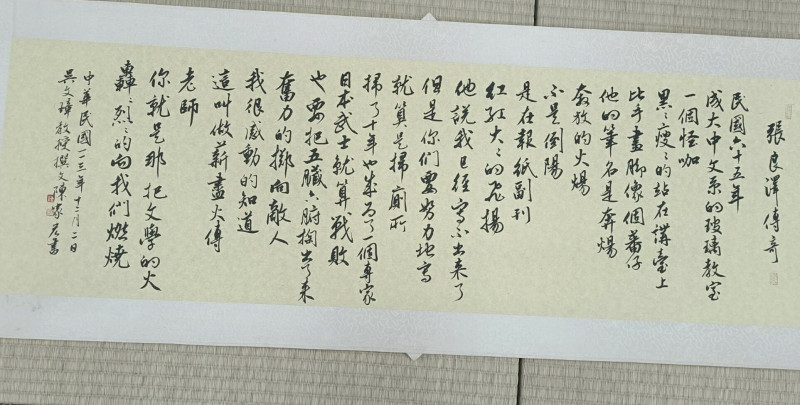 張良澤傳奇
民國六十五年
成大中文系的玻璃教室
一個怪咖
黑黑瘦瘦的站在講臺上
比手畫腳像個番仔
他的筆名是奔煬
奔放的火煬
不是倒陽
是在報紙副刊
紅紅大大的飛揚
他說我已經寫不出來了
但是你們要努力地寫
就算是掃廁所
掃了十年也成為了個專家
日本武士就算戰敗
也要把五臟六腑掏出了來
奮力的擲向敵人
我很感動的知道
這叫做薪盡火傳
老師
你就是那把文學的火
轟轟烈烈的向我們燃燒
中華民國一一三年十二月二日
吳文璋教授撰文陳家君書